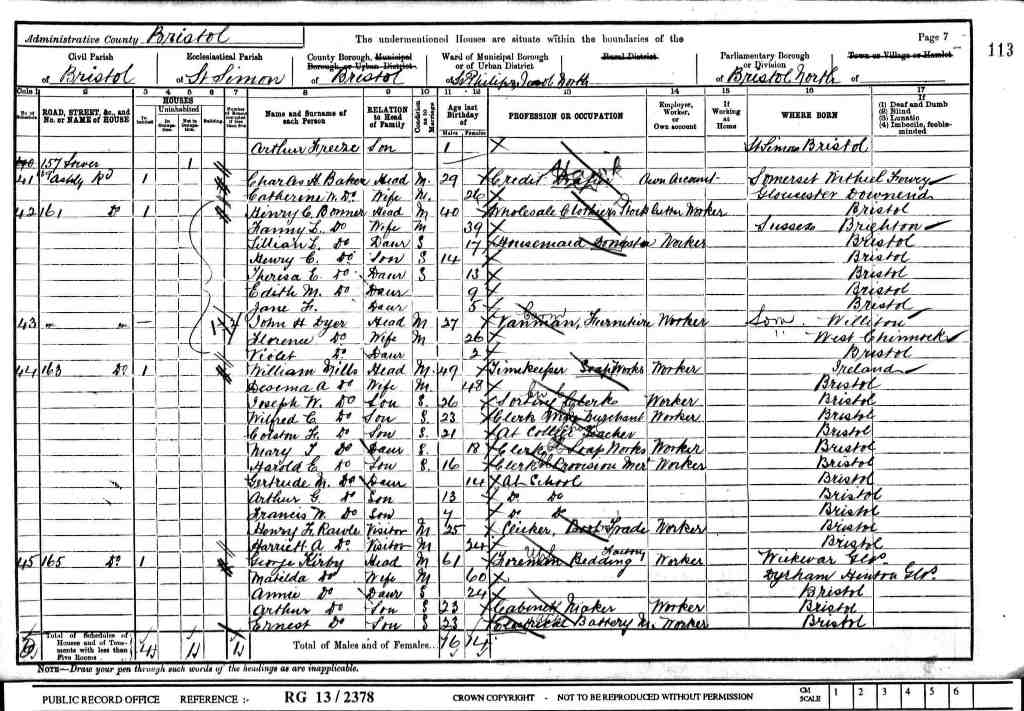 Administrative County Bristol The undermentioned Houses are situate within the boundaries of the Page 7
113
Civil Parish Ecclesiastical Parish County Borough, Municipal Borough or Urban District Ward of Municipal Borough or of Urban District Rural District Parliamentary Borough or Division Town or Village or Hamlet
of Bristol of St Simon of Bristol of St Philip & Jacob North of Bristol North of
Cols 1 2 3 4 5 6 7 8 9 10 11 12 13 14 15 16 17
ROAD, STREET, &c., and No. or NAME of HOUSE HOUSES Uninhabited Building Name and Surname of each Person RELATION to Head of Family Condition as to Marriage Age last Birthday of Males Females PROFESSION OR OCCUPATION Employer, Worker, or Own account If Working at Home WHERE BORN If (1) Deaf and Dumb (2) Blind (3) Lunatic (4) Imbecile, feeble-minded
Arthur Freeze Son 1 St Simon Bristol
157 1
41 1 Charles H Baker Head M. 29 Credit Draper Own Account Somerset Withiel Fowey
Catherine W. Do Wife M. 26 Gloucester Downend
42 161 Do 1 Henry C. Bonner Head M 40 Wholesale Clothiers Stock Cutter Worker Bristol
Fanny L. Do Wife M 39 Sussex Brighton
Lillian L. Do Daur S 17 Housemaid Domestic Worker Bristol
Henry C. Do Son S 14 Bristol
Theresa E. Do Daur S 13 Bristol
Edith M. Do Daur 9 Bristol
Jane F. Daur 5 Bristol
43 " " John H Dyer Head M 27 Vanman, Furniture Worker Som. Williton
Florence Do Wife M 26 " West Chinnock
Violet Do Daur 2 Bristol
44 163 Do 1 William Mills Head M. 49 Timekeeper Soap Works Worker Ireland
Do Wife M. 48 Bristol
Joseph W. Do Son S. 26 Sorting Clerk Worker Bristol
Wilfred C. Do Son S. 23 Clerk Merchant Worker Bristol
Colston H. Do Son S. 21 At College Teacher Bristol
Mary J Do Daur S. 18 Clerk Soap Works Worker Bristol
Harold E Do Son S. 16 Clerk Provision Mert Worker Bristol
Gertrude M. Do Daur 14 At School Bristol
Arthur G. Do Son 13 Do Do Bristol
Francis W. Do Son 7 Do Do Bristol
Henry F. Rawle Visitor M 25 Clicker, Boot Trade Worker Bristol
Harriett A Do Visitor M 24 Bristol
45 165 Do 1 George Kirby Head M 61 Foreman Bedding Factory Worker Wickwar Glos.
Matilda Do Wife M 60 Dyrham Hinton Glos.
Annie Do Daur S 24 Bristol
Arthur Do Son S 23 Cabinet Maker Worker Bristol
Ernest Do Son S 23 Electrical Battery M. Worker Bristol
Total of Schedules of Houses and of Tenements with less than Five Rooms Total of Males and of Females 16 14
NOTE—Draw your pen through such words of the headings as are inapplicable.
PUBLIC RECORD OFFICE REFERENCE :- RG 13/2378 CROWN COPYRIGHT - NOT TO BE REPRODUCED WITHOUT PERMISSION CM SCALE 1 2 3 4 5 6